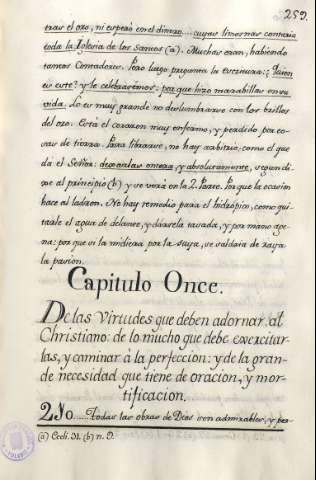 259.
tras el oro, ni esperó en el dinero.... cuyas limosnas contaria
toda la Iglesia de los Santos (a). Muchas eran, habiendo
tantos Contadores. Pero luego pregunta la Escritura: ¿Quien
es este? y le celebraremos: porque hizo marabillas en su
vida. Lo es muy grande no deslumbrarse con los brillos
del oro. Está el corazon muy enfermo, y perdido por co-
sas de tierra. Para librarse, no hay arbitrio, como el que
dá el Señor: dexarlas entera, y absolutamente, segun di-
xe al principio (b) y se verá en la 2. Parte. Porque la ocasion
hace al ladron. No hay remedio para el hidrópico, como qui-
tarle el agua de delante, y dársela tasada, y por mano age-
na: por que si la midiera por la suya, se saldria de raya
la pasion.
Capitulo Once.
De las Virtudes que deben adornar al
Christiano: de lo mucho que debe exercitar-
las, y caminar à la perfeccion: y de la gran-
de necesidad que tiene de oracion, y mor-
tificacion.
210.....Todas las obras de Dios son admirables, y per-
(a) Eccli. 31. (b) n. 9.